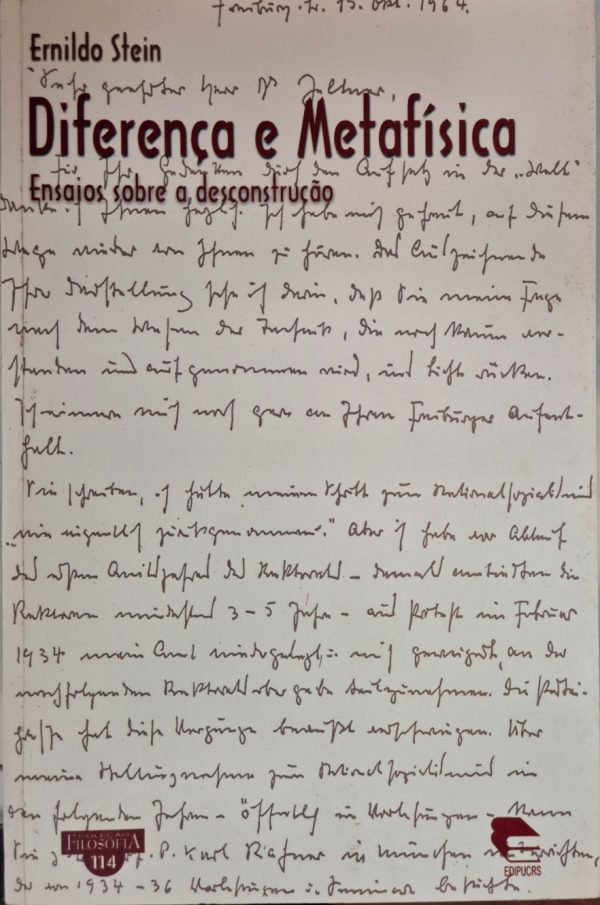 Freiburg i. Br. 13. Okt. 1964.
Ernildo Stein
Sehr geehrter Herr
Diferença e Metafísica
für Ihr Gedenken durch den Aufsatz in der „Welt"
Ensaios sobre a desconstrução
danke ich Ihnen herzlich. Ich habe mich gefreut, auf diesem
Wege wieder von Ihnen zu hören. Das Auszeichnende
Ihrer Darstellung sehe ich darin, daß Sie meine Frage
nach dem Wesen der Technik, die noch kaum ver-
standen und aufgenommen wird, ins Licht rücken.
Ich erinnere mich noch gern an Ihren Freiburger Aufent-
halt.
Sie schreiben, ich hätte meinen Schritt zum Nationalsozialismus
„nie eigentlich zurückgenommen." Aber ich habe vor Ablauf
des ersten Amtsjahres des Rektorats – damals amtierten die
Rektoren mindestens 3-5 Jahre – aus Protest im Februar
1934 mein Amt niedergelegt u. mich geweigert, an der
nachfolgenden Rektoratsübergabe teilzunehmen. Die Partei-
presse hat diese Vorgänge bewußt verschwiegen. Über
meine Stellungnahme zum Nationalsozialismus in
den folgenden Jahren – öffentlich in Vorlesungen – kann
COLEÇÃO
FILOSOFIA
114
Sie P. Karl Rahner in München unterrichten,
EDIPUCRS
der von 1934-36 Vorlesungen u. Seminare besuchte.